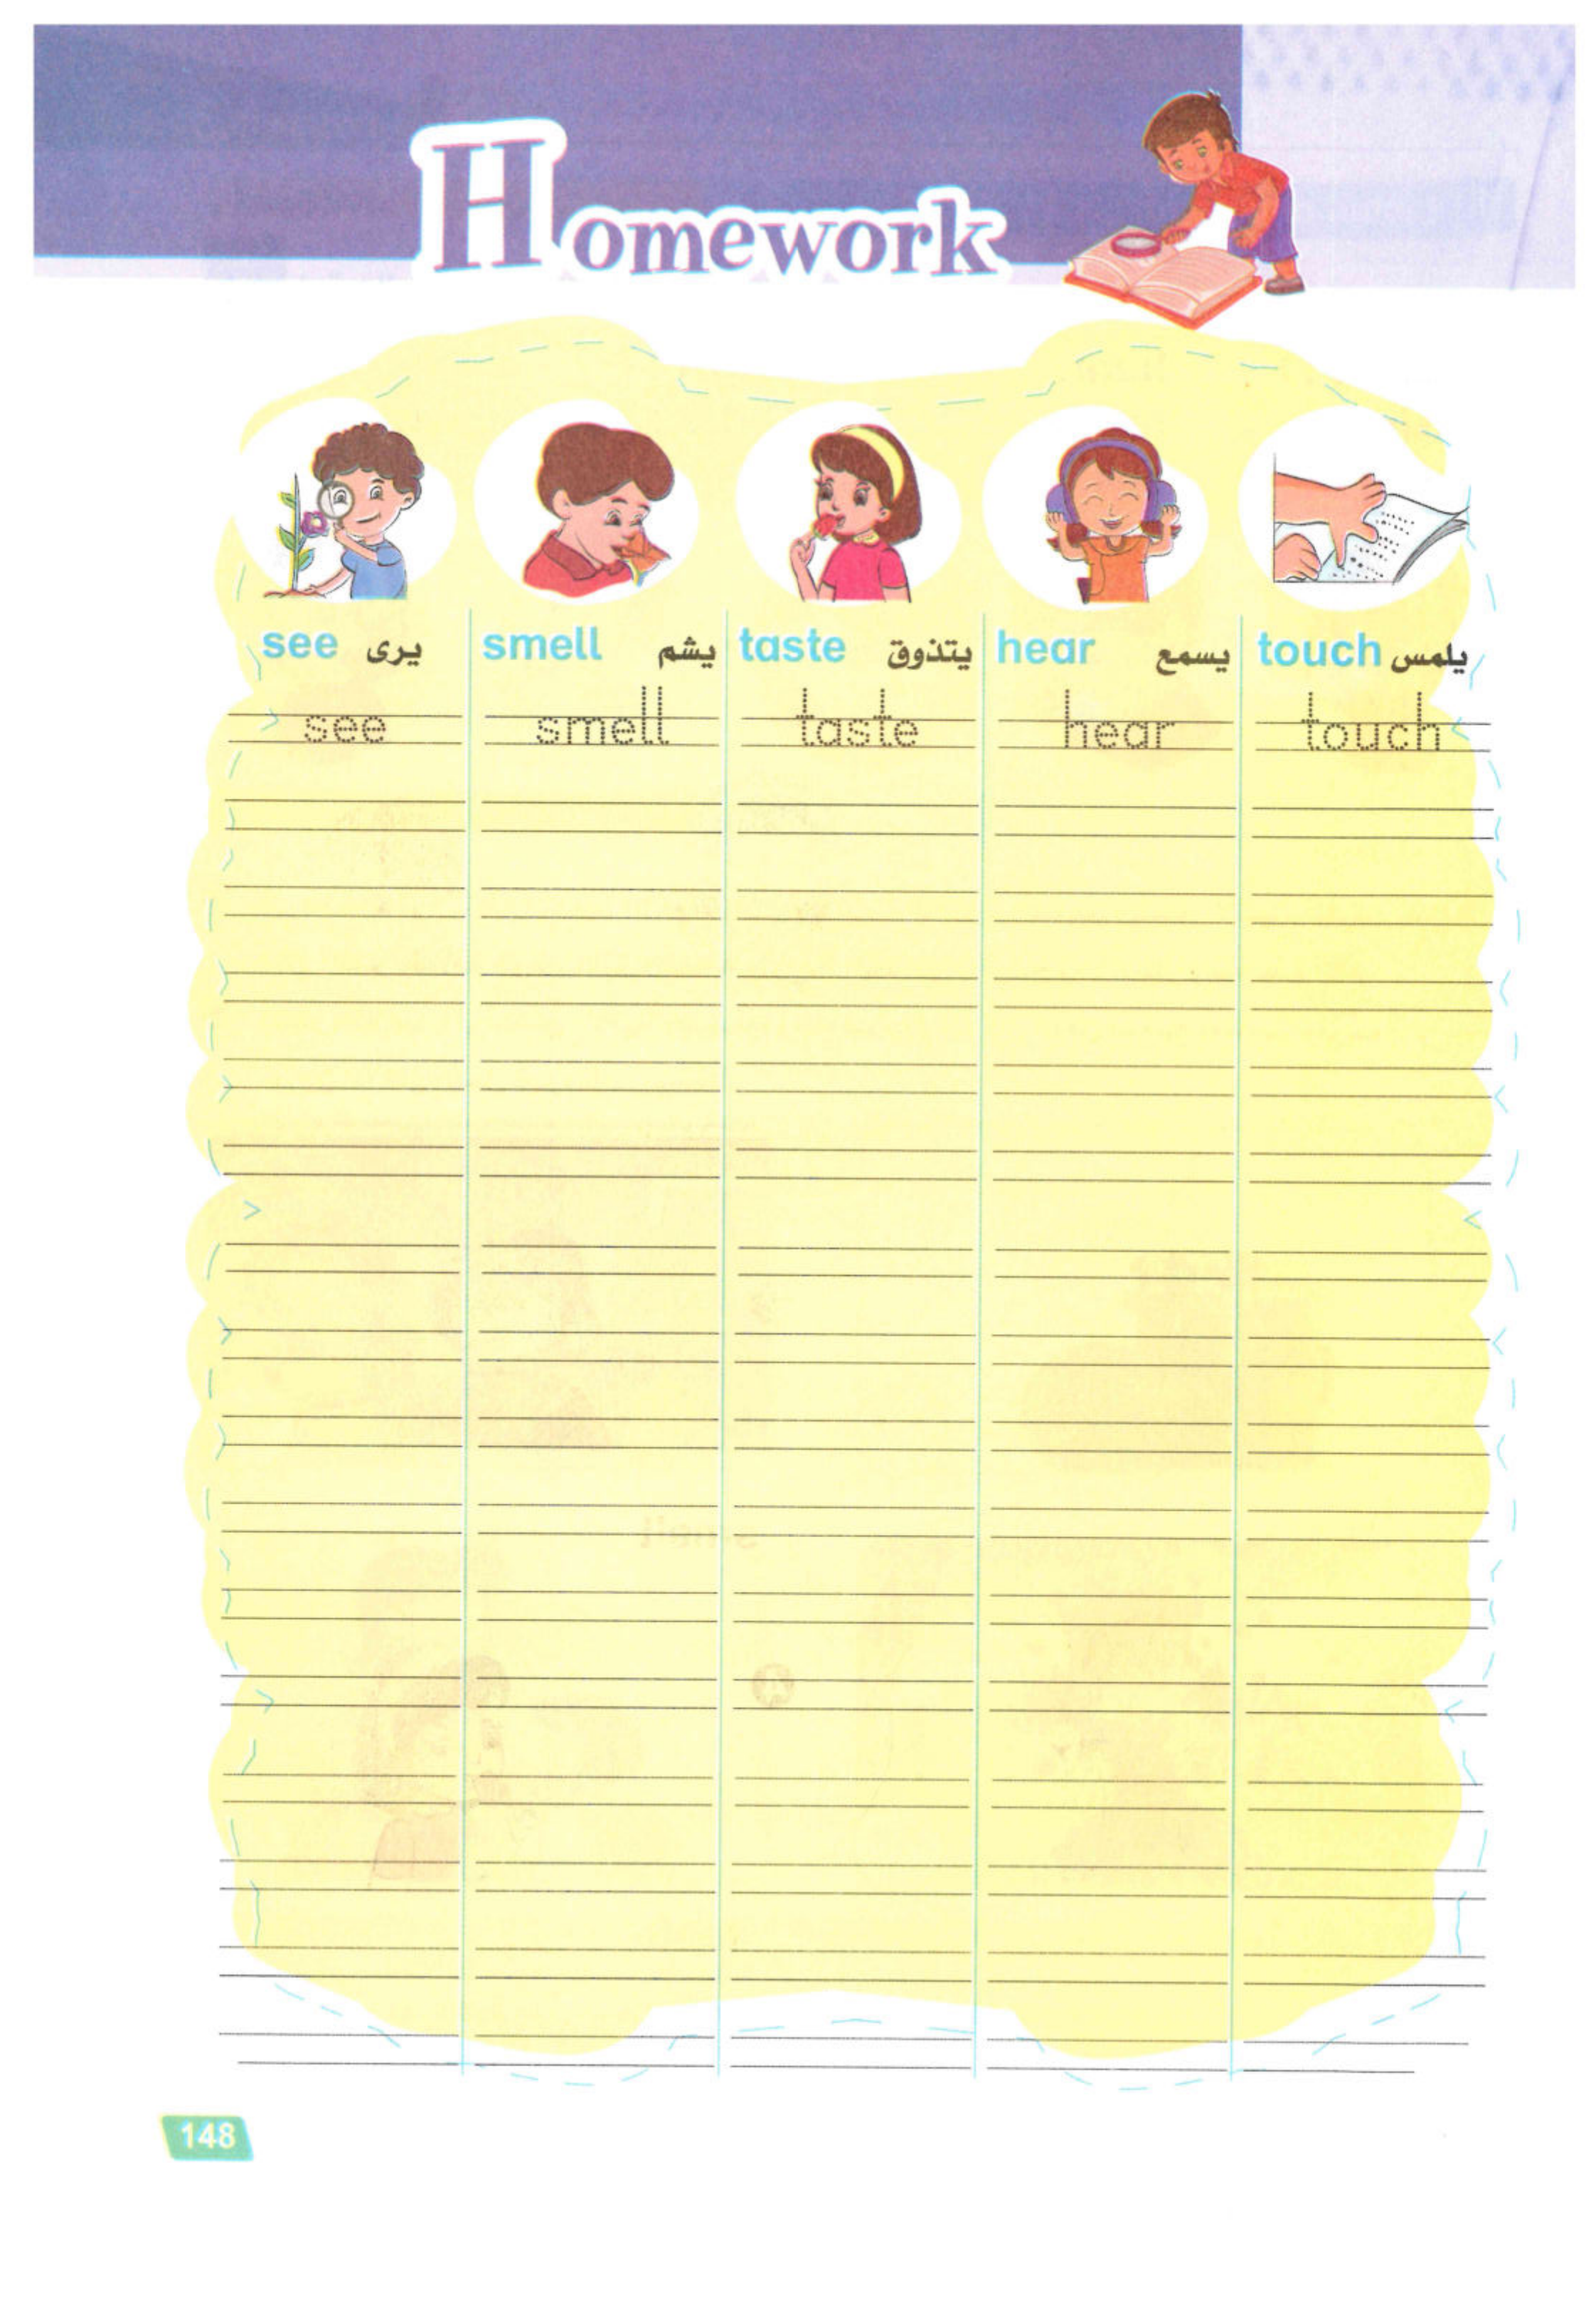 Homework
see يرى smell يشم taste يتذوق hear يسمع touch يلمس
see smell taste hear touch
148